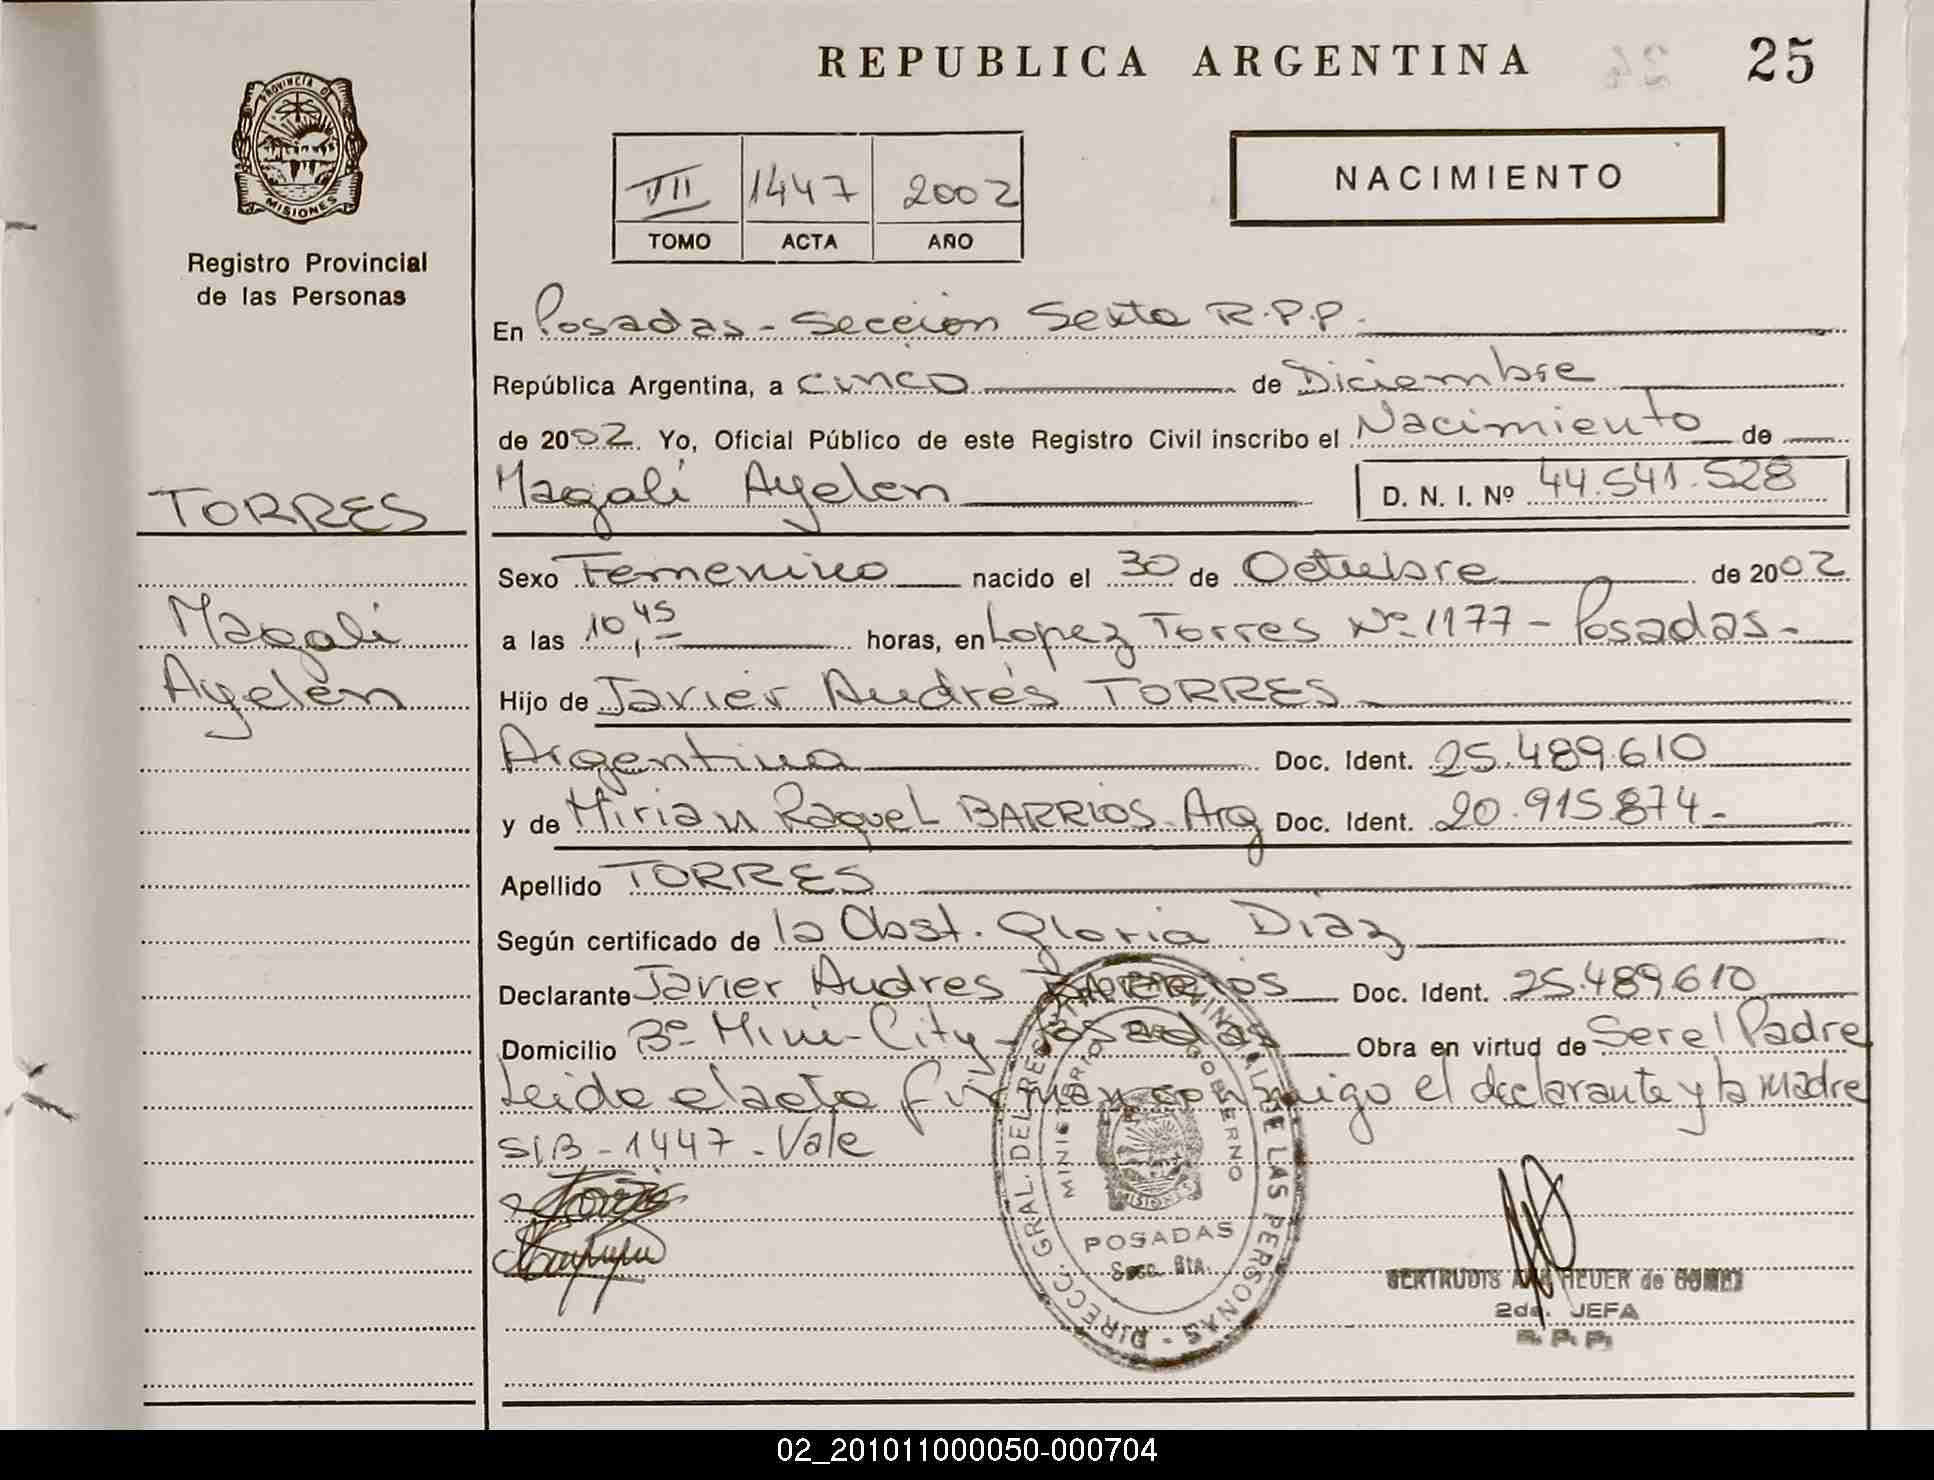 REPUBLICA ARGENTINA
25
PROVINCIA D
MISIONES
Registro Provincial
de las Personas
VII 1447 2002
TOMO ACTA AÑO
NACIMIENTO
En Posadas - Sección Sexta R.P.P.
República Argentina, a cinco de Diciembre
de 2002. Yo, Oficial Público de este Registro Civil inscribo el Nacimiento de
TORRES
Magalí Ayelen D. N. I. Nº 44.541.528
Sexo Femenino nacido el 30 de Octubre de 2002
Magalí
a las 10,45 horas, en Lopez Torres Nº 1177 - Posadas -
Ayelen
Hijo de Javier Andrés TORRES
Argentina Doc. Ident. 25.489.610
y de Mirian Raquel BARRIOS - Arg Doc. Ident. 20.915.874 -
Apellido TORRES
Según certificado de la Obst. Gloria Diaz
Declarante Javier Andres Doc. Ident. 25.489.610
Domicilio Bº Mini-City - Posadas Obra en virtud de Ser el Padre
Leida el acta firman conmigo el declarante y la madre
S/B - 1447 - Vale
DIRECC. GRAL. DEL REG. PROVINCIAL DE LAS PERSONAS -
MINISTERIO DE GOBIERNO
MISIONES
POSADAS
Secc. 6ta.
GERTRUDIS ANA HEUER de GOMEZ
2da. JEFA
R. P. P.
02_201011000050-000704